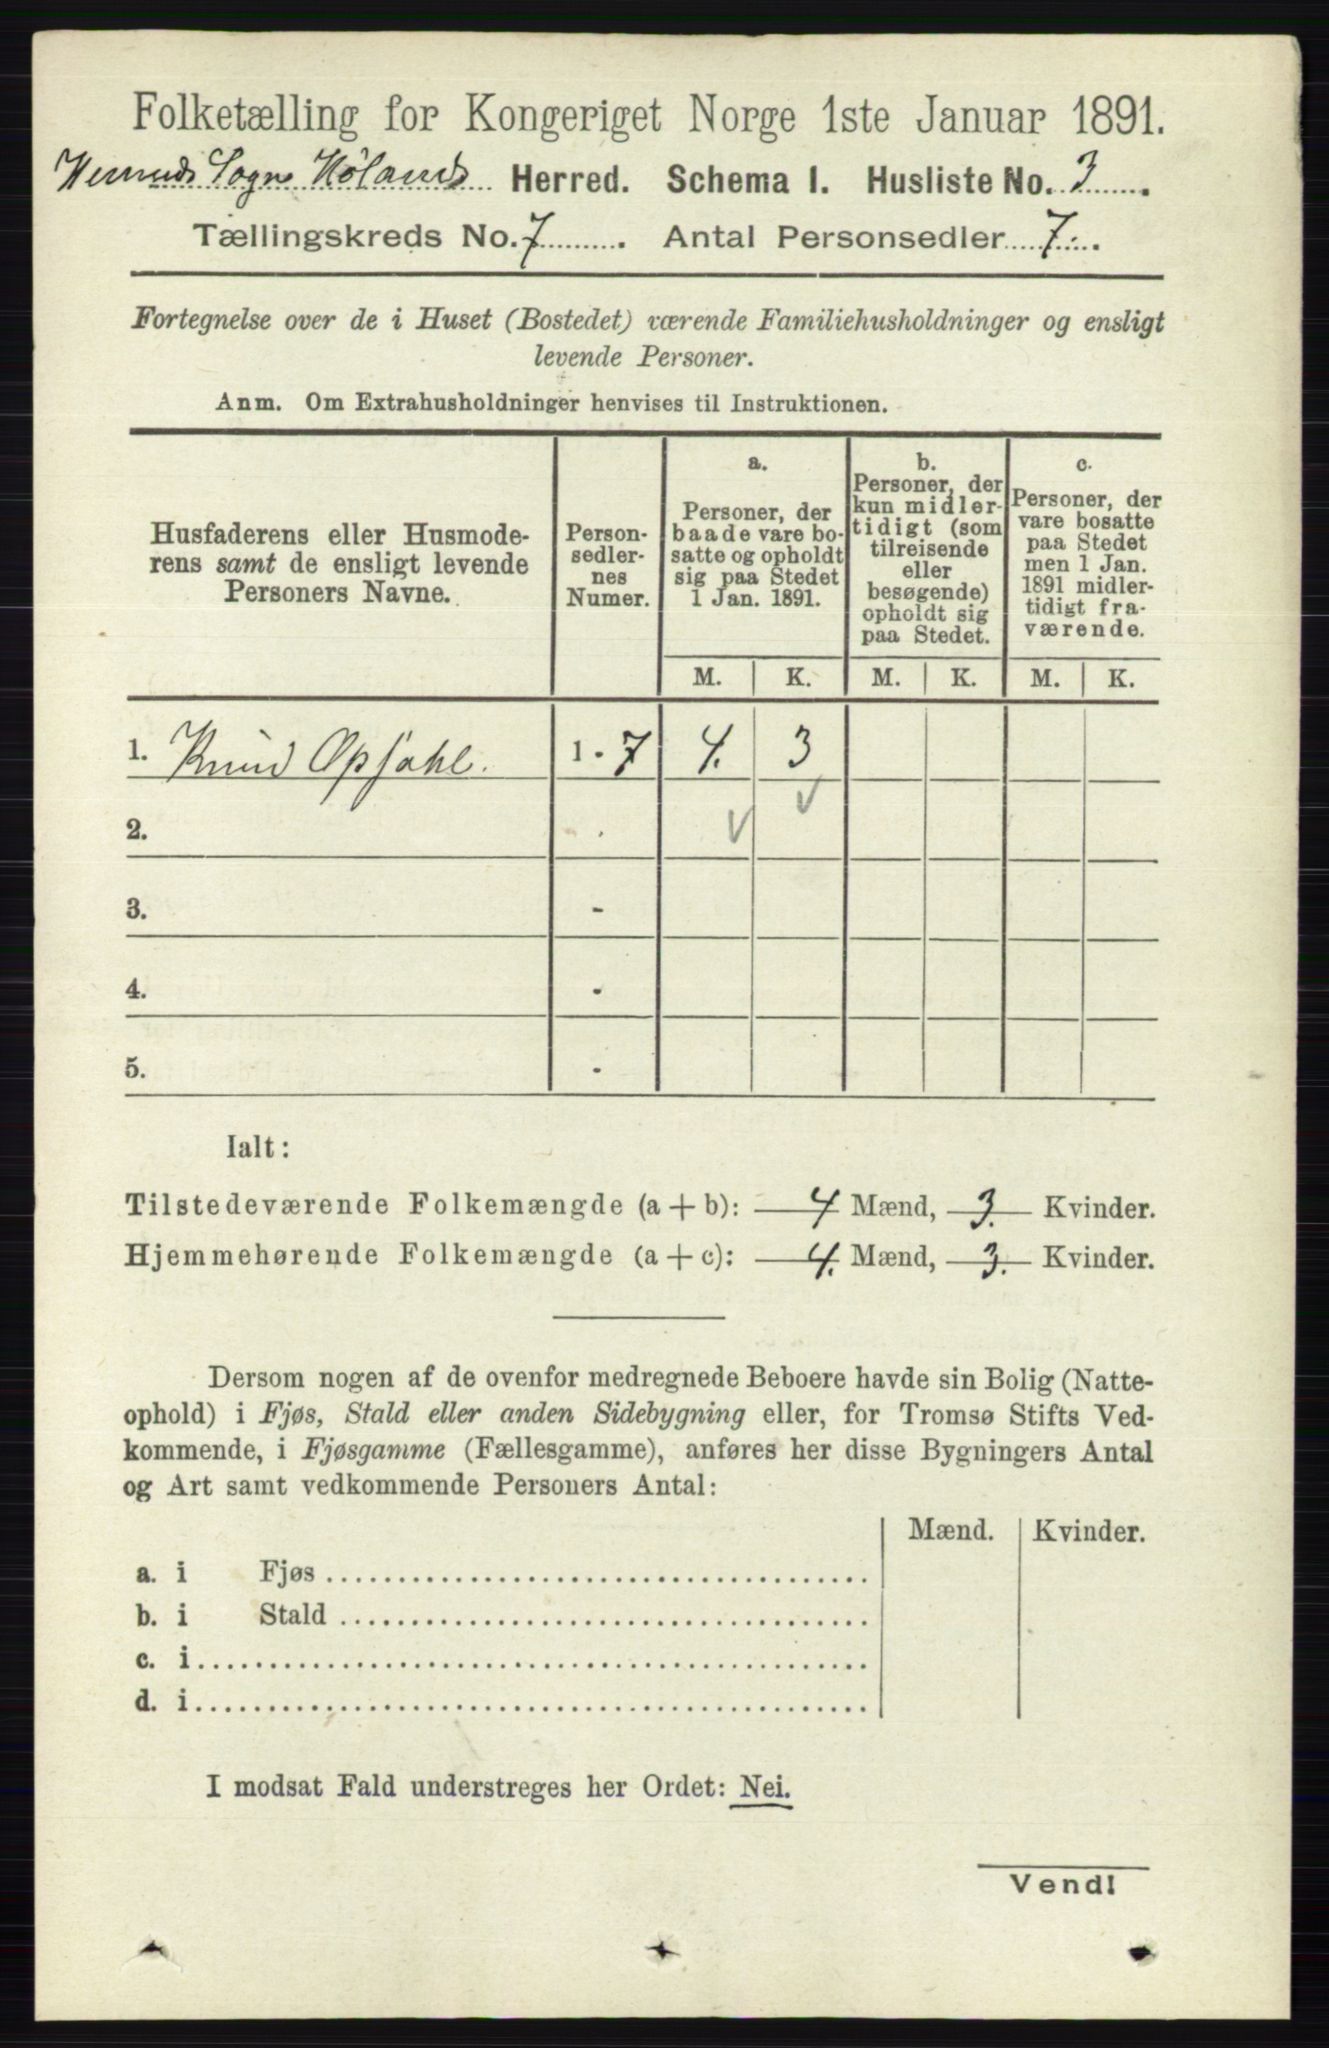 Folketælling for Kongeriget Norge 1ste Januar 1891.
Sogn Hølands Herred. Schema I. Husliste No. 3.
Tællingskreds No. 7. Antal Personsedler 7.
Fortegnelse over de i Huset (Bostedet) værende Familiehusholdninger og ensligt
levende Personer.
Anm. Om Extrahusholdninger henvises til Instruktionen.
Husfaderens eller Husmode-
rens samt de ensligt levende
Personers Navne.
Person-
sedler-
nes
Numer.
a.
Personer, der
baade vare bo-
satte og opholdt
sig paa Stedet
1 Jan. 1891.
b.
Personer, der
kun midler-
tidigt (som
tilreisende
eller
besøgende)
opholdt sig
paa Stedet.
c.
Personer, der
vare bosatte
paa Stedet
men 1 Jan.
1891 midler-
tidigt fra-
værende.
M. K. M. K. M. K.
1. Knud Opsahl. 1 - 7 4. 3
2. -
3. -
4. -
5. -
Ialt:
Tilstedeværende Folkemængde (a + b): 4 Mænd, 3. Kvinder.
Hjemmehørende Folkemængde (a + c): 4. Mænd, 3. Kvinder.
Dersom nogen af de ovenfor medregnede Beboere havde sin Bolig (Natte-
ophold) i Fjøs, Stald eller anden Sidebygning eller, for Tromsø Stifts Ved-
kommende, i Fjøsgamme (Fællesgamme), anføres her disse Bygningers Antal
og Art samt vedkommende Personers Antal:
Mænd. Kvinder.
a. i Fjøs
b. i Stald
c. i
d. i
I modsat Fald understreges her Ordet: Nei.
Vend!